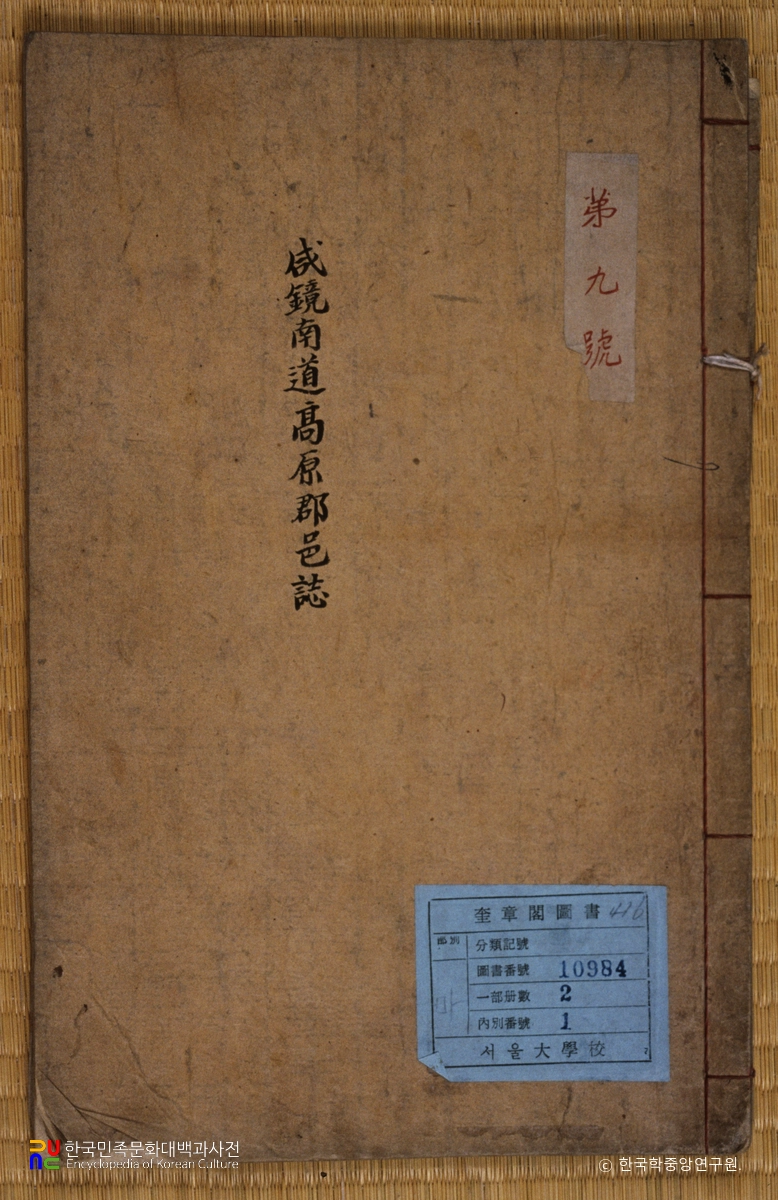 第九號
咸鏡南道高原郡邑誌
奎章閣圖書 416
部別
分類記號
圖書番號 10984
一部册數 2
內別番號 1
마
서울大學校
한국민족문화대백과사전
Encyclopedia of Korean Culture
ⓒ 한국학중앙연구원